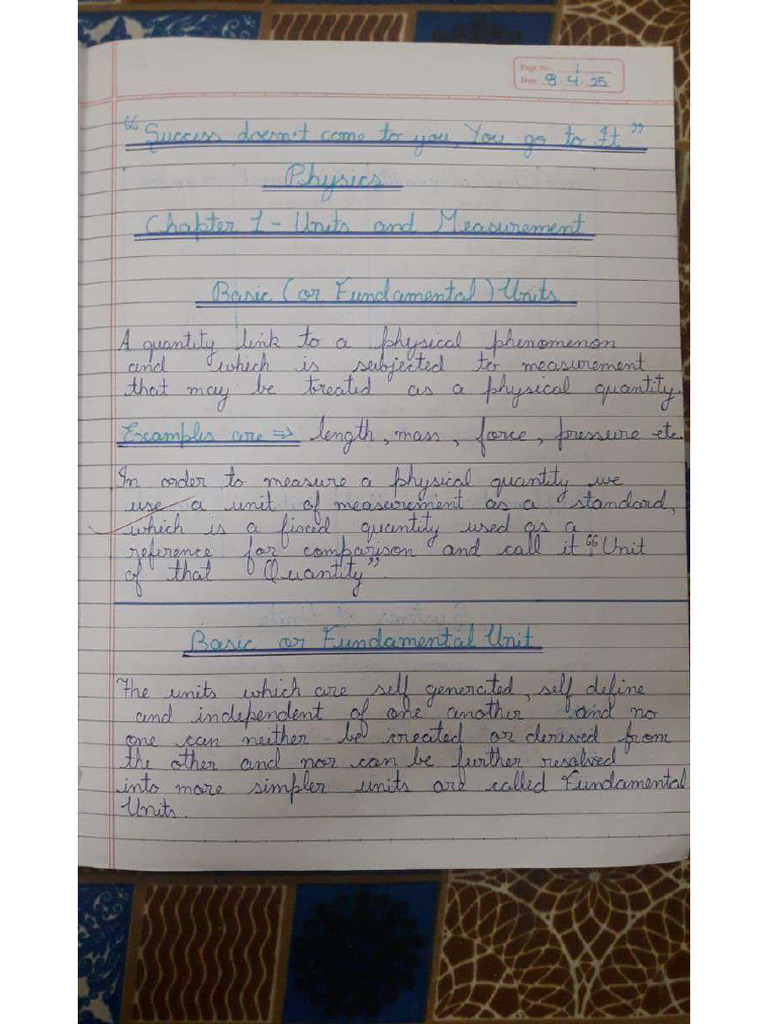 Page No. 1
Date: 8.4.25
"Success doesn't come to you, You go to It"
Physics
Chapter 1 - Units and Measurement
Basic (or Fundamental) Units
A quantity link to a physical phenomenon
and which is subjected to measurement
that may be treated as a physical quantity.
Examples are ⇒ length, mass, force, pressure etc.
In order to measure a physical quantity we
use a unit of measurement as a standard,
which is a fixed quantity used as a
reference for comparison and call it "Unit
of that Quantity".
Basic or Fundamental Unit
The units which are self generated, self define
and independent of one another and no
one can neither be created or derived from
the other and nor can be further resolved
into more simpler units are called Fundamental
Units.